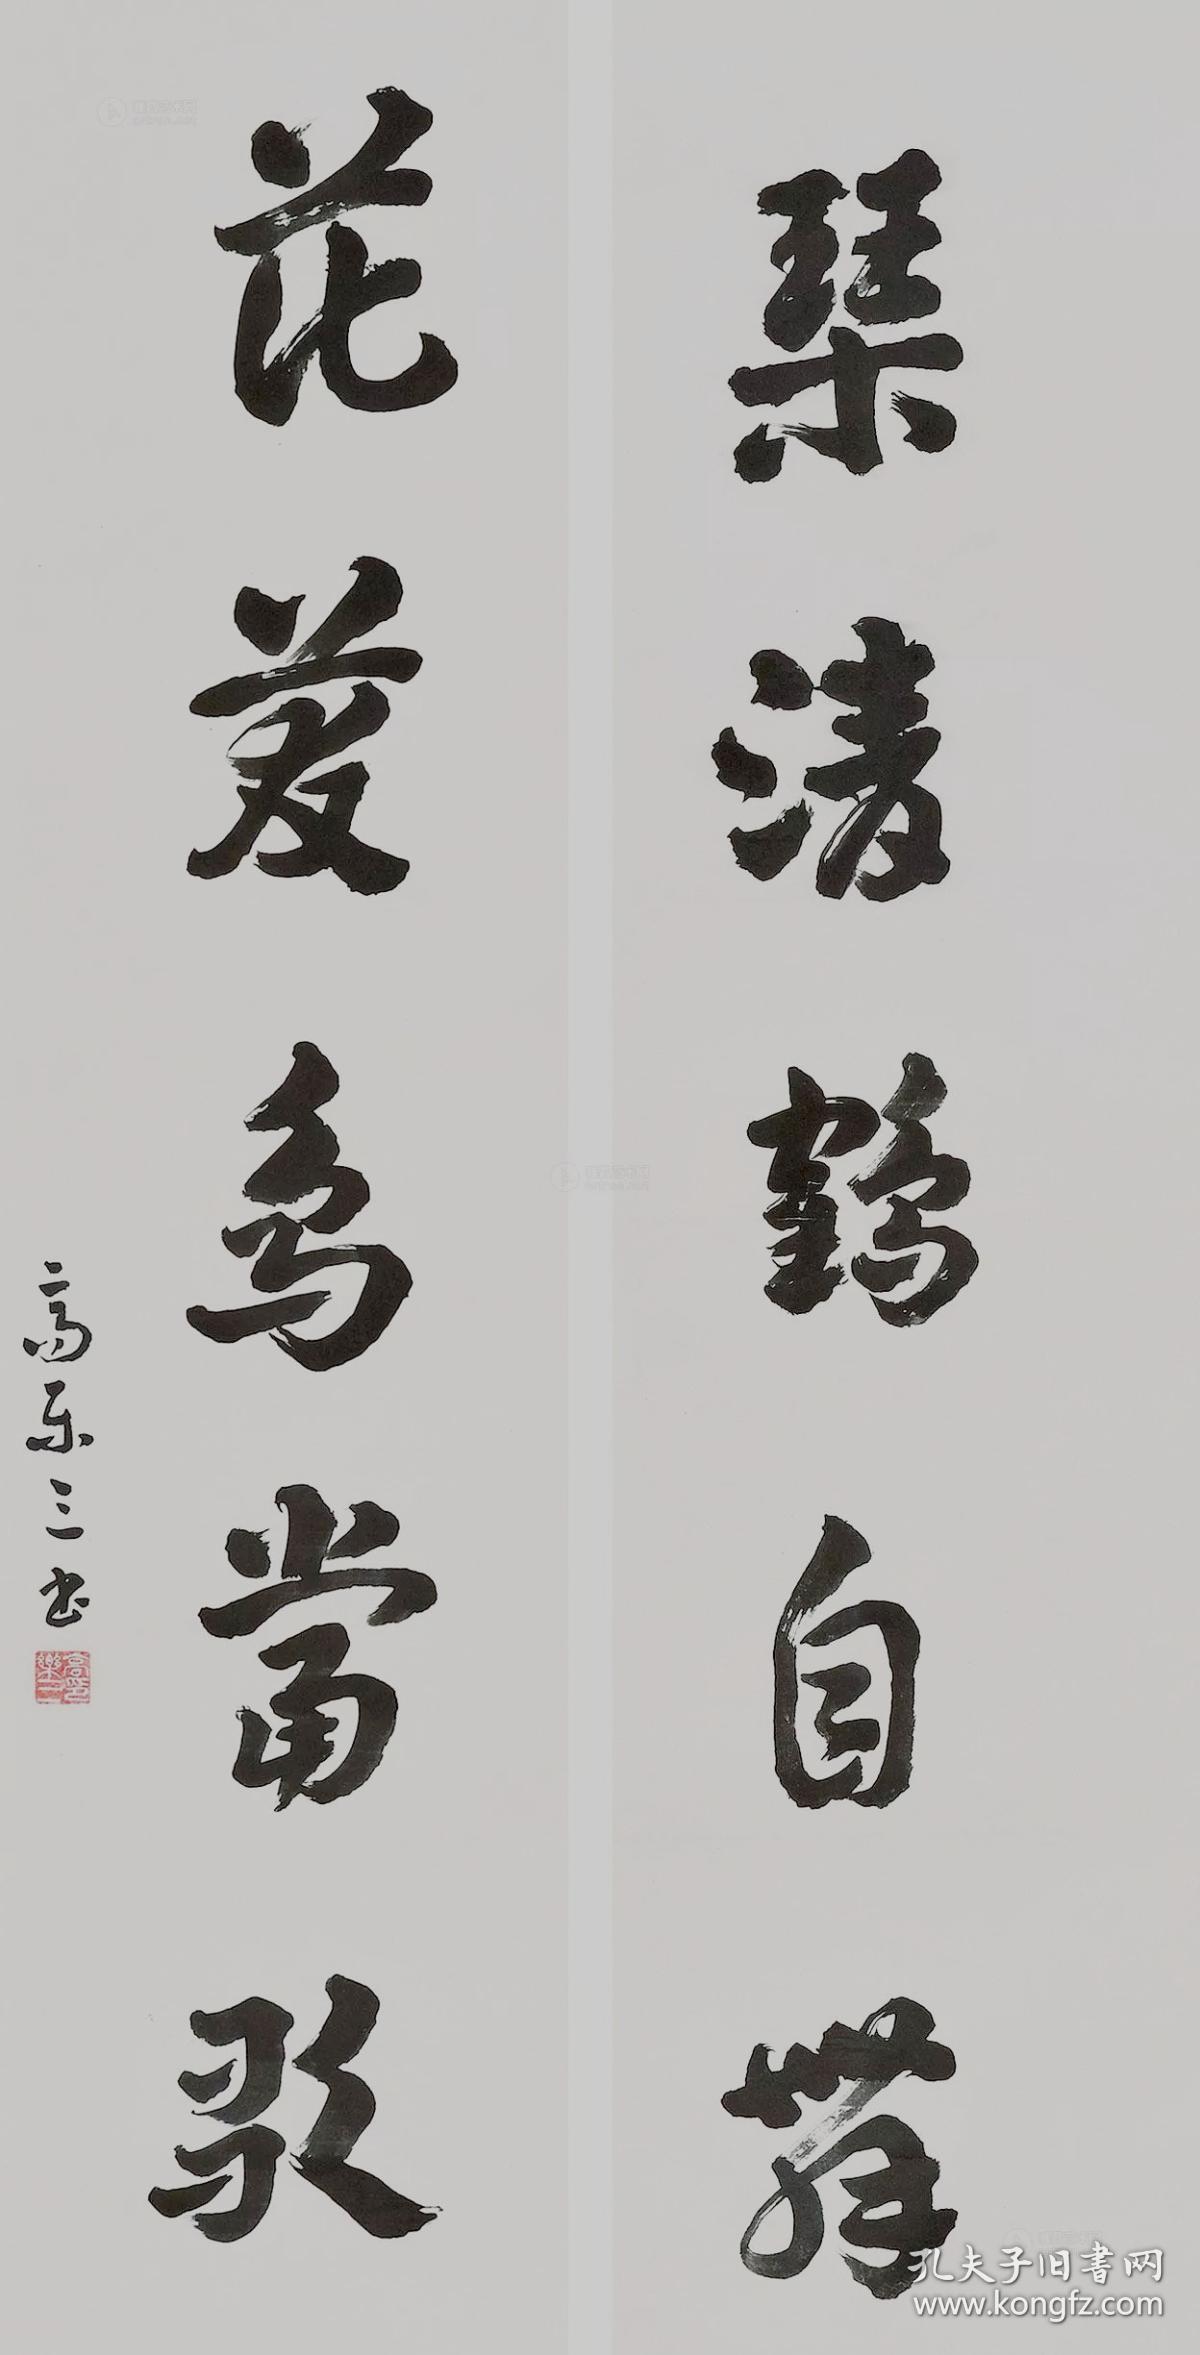 琴清鹤自舞
花发鸟当歌
高乐三书
孔夫子旧书网
www.kongfz.com